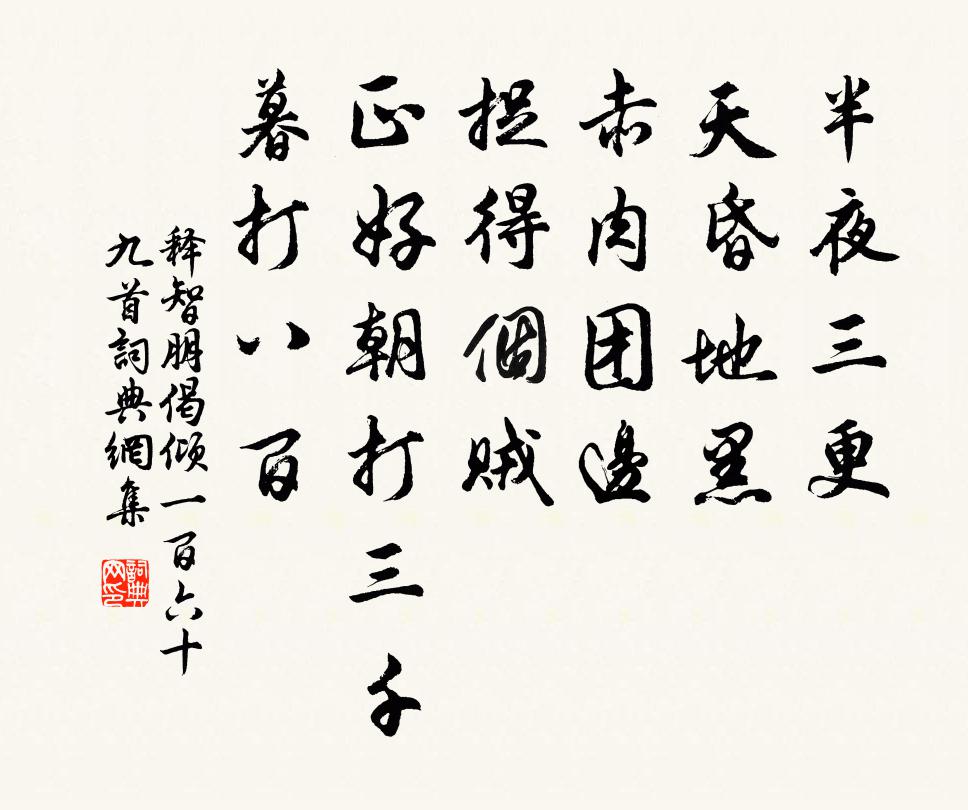 半夜三更
天昏地黑
赤肉团邊
捉得個賊
正好朝打三千
暮打八百
释智朋偈倾一百六十
九首詞典網集
詞典网印